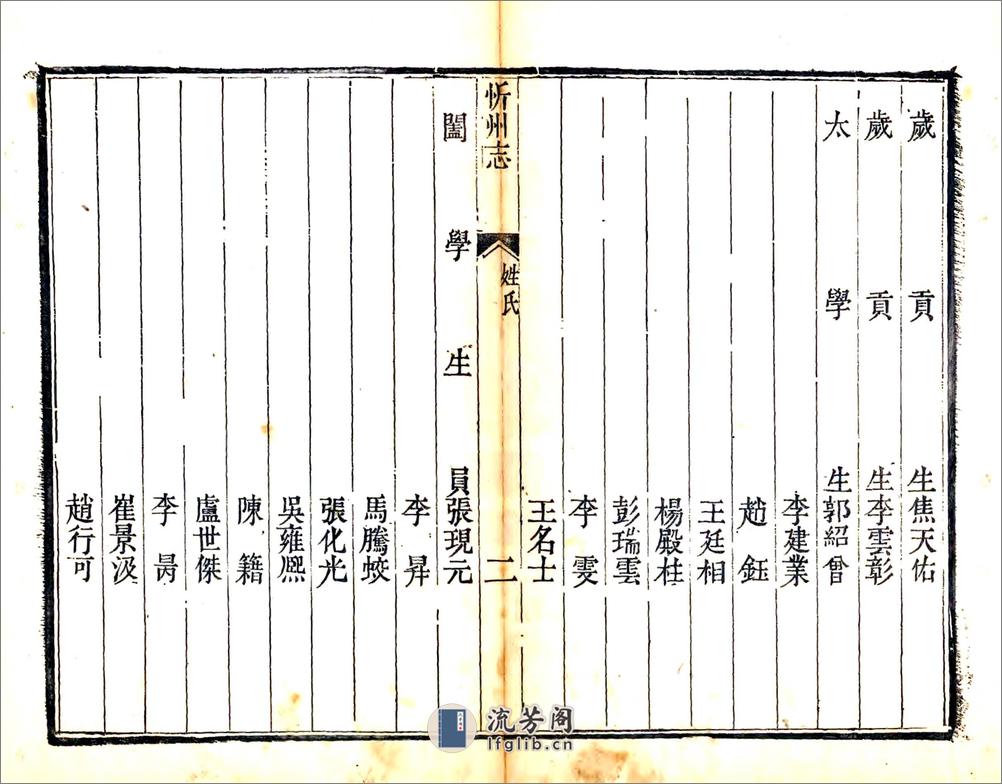 歲貢生焦天佑
歲貢生李雲彰
太學生郭紹曾
李建業
趙鈺
王廷相
楊殿桂
彭瑞雲
李雯
王名士
忻州志
姓氏
二
闔學生員張現元
李昇
馬騰蛟
張化光
吳雍熈
陳籍
盧世傑
李昺
崔景汲
趙行可
流芳阁
lfglib.cn